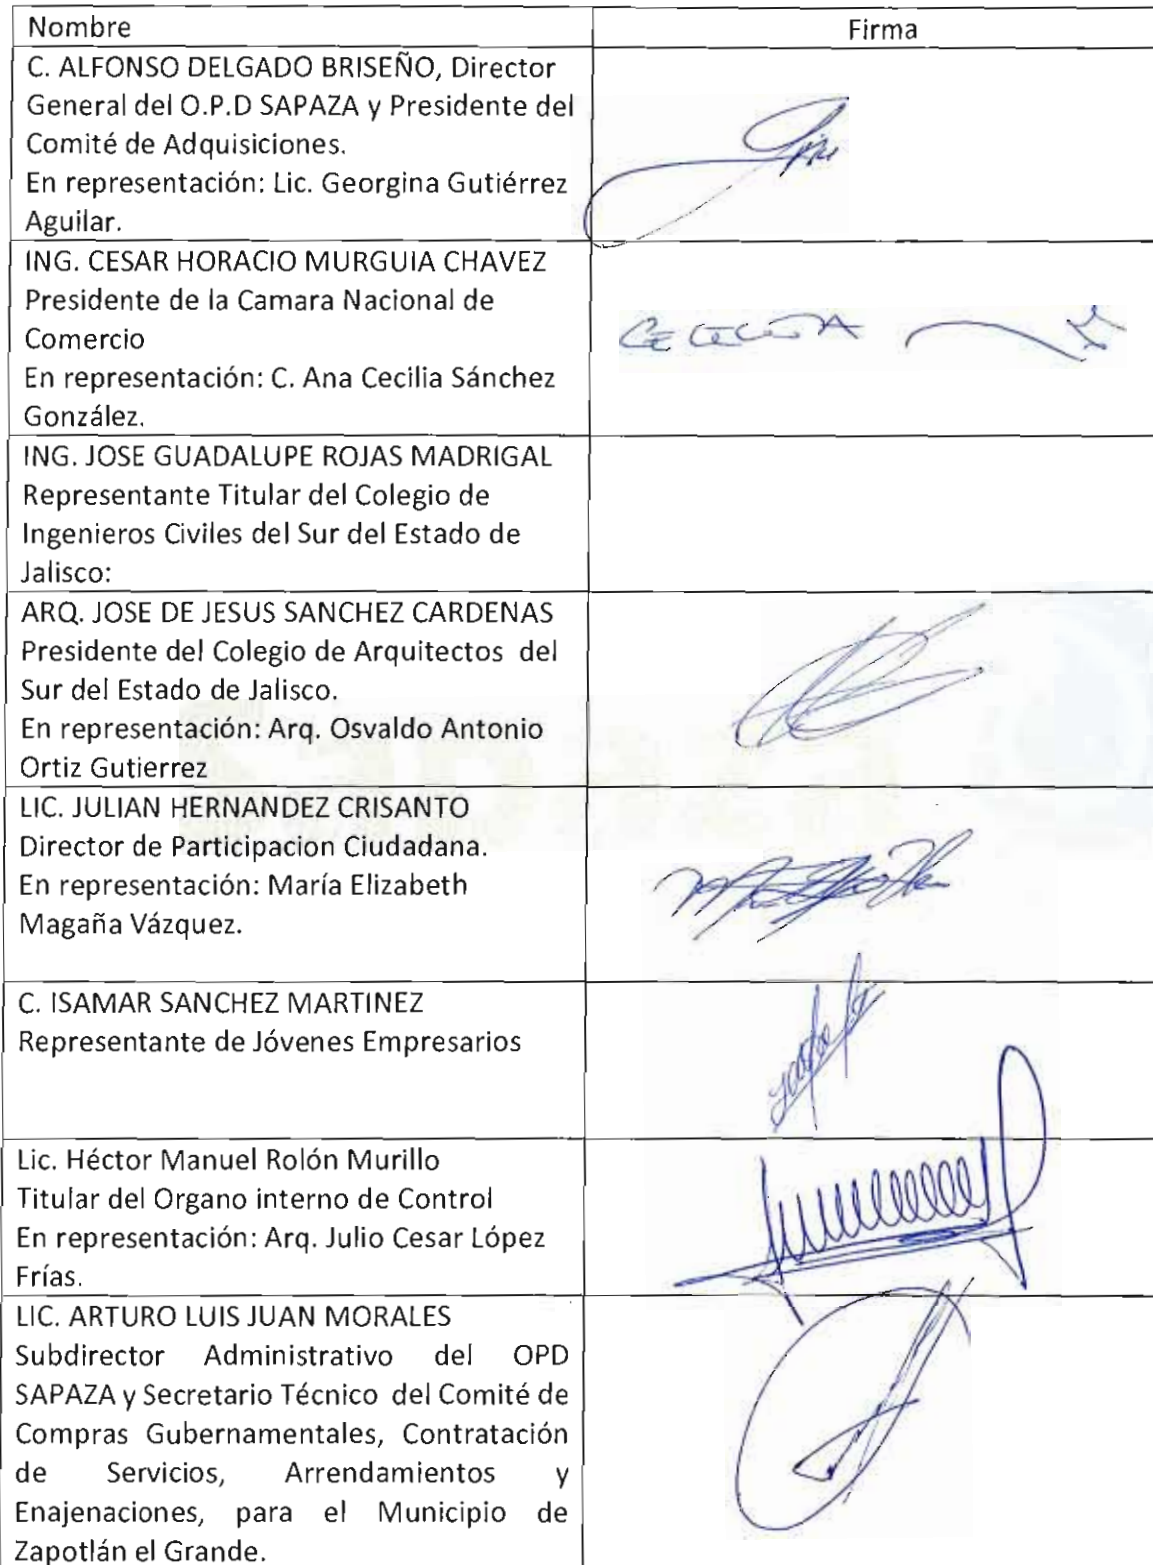 Nombre
Firma
C. ALFONSO DELGADO BRISEÑO, Director
General del O.P.D SAPAZA y Presidente del
Comité de Adquisiciones.
En representación: Lic. Georgina Gutiérrez
Aguilar.
ING. CESAR HORACIO MURGUIA CHAVEZ
Presidente de la Camara Nacional de
Comercio
En representación: C. Ana Cecilia Sánchez
González.
ING. JOSE GUADALUPE ROJAS MADRIGAL
Representante Titular del Colegio de
Ingenieros Civiles del Sur del Estado de
Jalisco:
ARQ. JOSE DE JESUS SANCHEZ CARDENAS
Presidente del Colegio de Arquitectos del
Sur del Estado de Jalisco.
En representación: Arq. Osvaldo Antonio
Ortiz Gutierrez
LIC. JULIAN HERNANDEZ CRISANTO
Director de Participacion Ciudadana.
En representación: María Elizabeth
Magaña Vázquez.
C. ISAMAR SANCHEZ MARTINEZ
Representante de Jóvenes Empresarios
Lic. Héctor Manuel Rolón Murillo
Titular del Organo interno de Control
En representación: Arq. Julio Cesar López
Frías.
LIC. ARTURO LUIS JUAN MORALES
Subdirector Administrativo del OPD
SAPAZA y Secretario Técnico del Comité de
Compras Gubernamentales, Contratación
de Servicios, Arrendamientos y
Enajenaciones, para el Municipio de
Zapotlán el Grande.